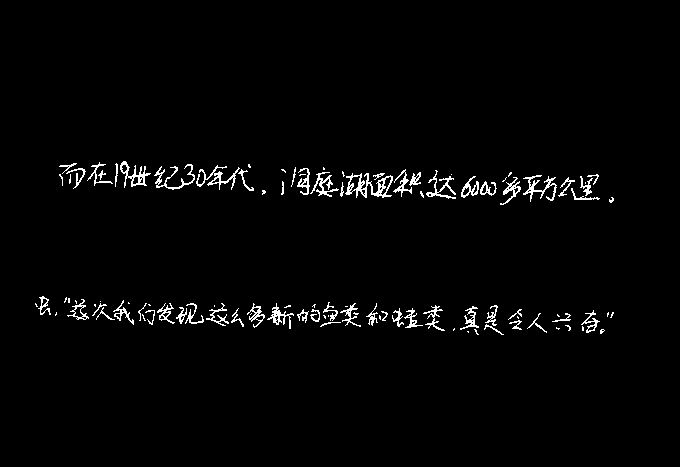 而在19世纪30年代，洞庭湖面积达6000多平方公里。
出，“这次我们发现这么多新的鱼类和蛙类，真是令人兴奋。”